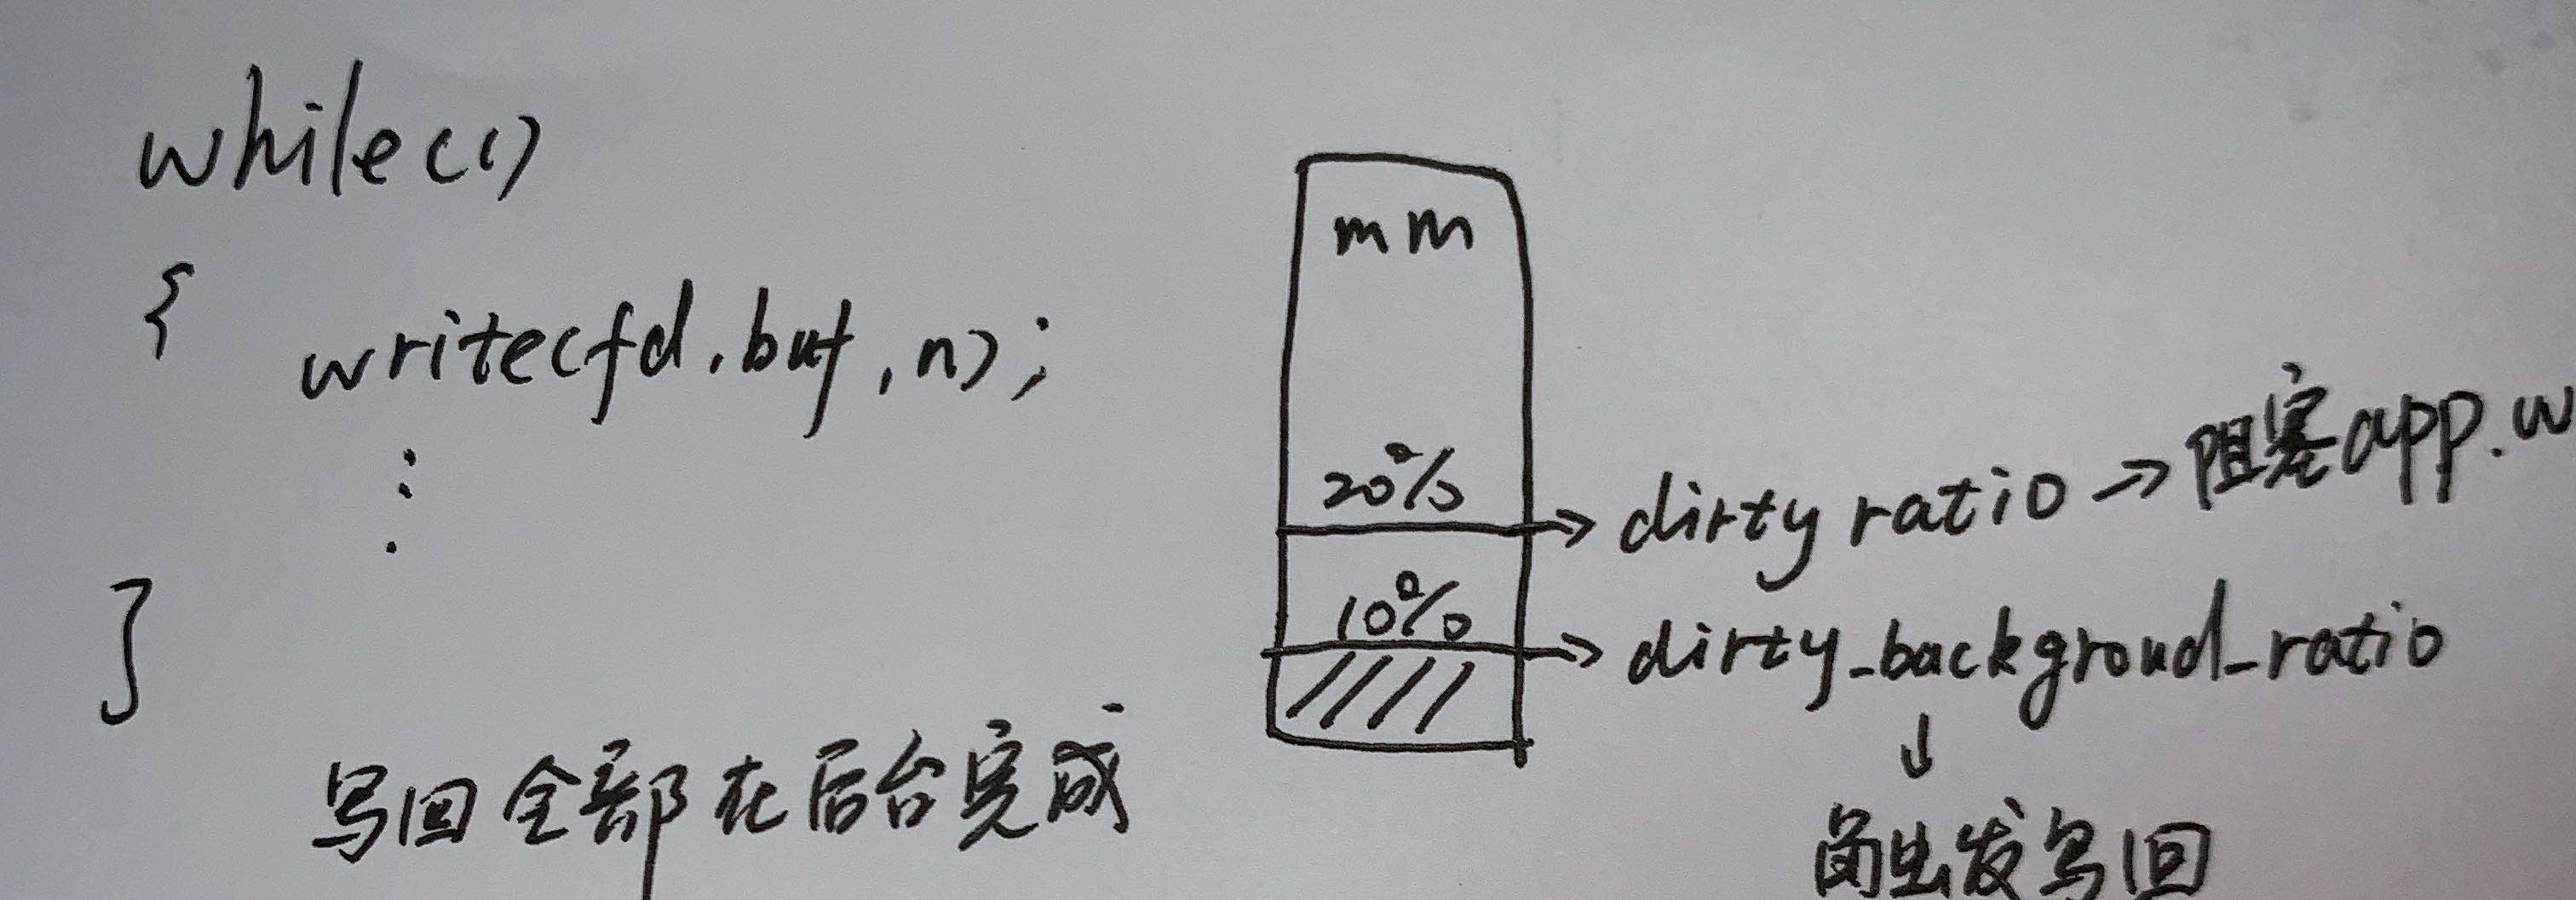 while(1)
{
write(fd,buf,n);
}
写回全部在后台完成
mm
20%
dirty ratio → 阻塞app.w
10%
dirty_backgroud_ratio
↓
触发写回